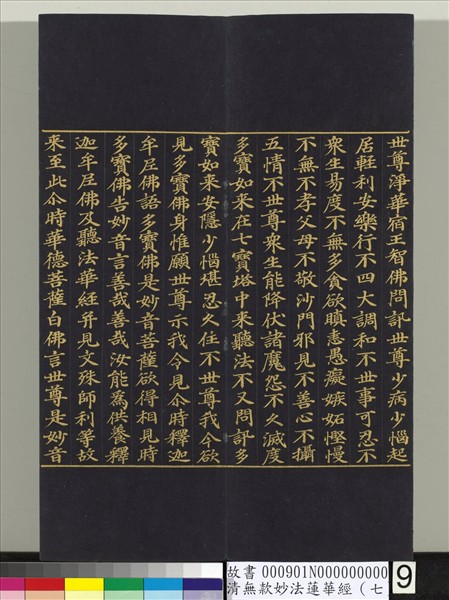 世尊淨華宿王智佛問訊世尊少病少惱起
居輕利安樂行不四大調和不世事可忍不
眾生易度不無多貪欲瞋恚愚癡嫉妬慳慢
不無不孝父母不敬沙門邪見不善心不攝
五情不世尊眾生能降伏諸魔怨不久滅度
多寶如來在七寶塔中來聽法不又問訊多
寶如來安隱少惱堪忍久住不世尊我今欲
見多寶佛身惟願世尊示我令見尒時釋迦
牟尼佛語多寶佛是妙音菩薩欲得相見時
多寶佛告妙音言善哉善哉汝能為供養釋
迦牟尼佛及聽法華經并見文殊師利等故
來至此尒時華德菩薩白佛言世尊是妙音
故書 000901N000000000
清無款妙法蓮華經（七
9